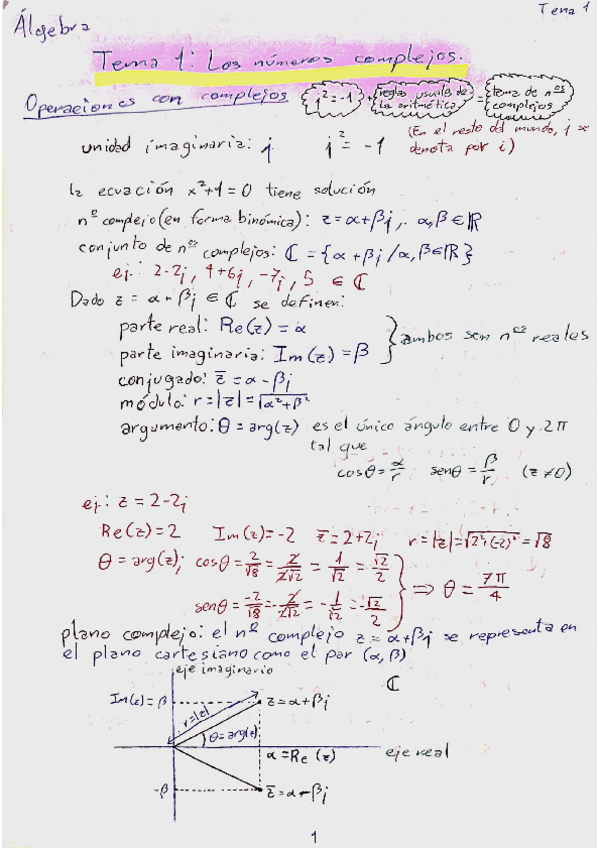 Tema 1
Álgebra
Tema 1: Los números complejos.
Operaciones con complejos (j²=-1) + (reglas usuales de la aritmética) = (tema de nºs complejos)
unidad imaginaria: j j² = -1 (En el resto del mundo, j se denota por i)
la ecuación x²+1=0 tiene solución
nº complejo (en forma binómica): z=α+βj, α,β∈ℝ
conjunto de nºs complejos: ℂ = {α+βj /α,β∈ℝ}
ej.: 2-2j, 4+6j, -7j, 5 ∈ ℂ
Dado z = α+βj ∈ ℂ se definen:
parte real: Re(z) = α
parte imaginaria: Im(z) = β } ambos son nºs reales
conjugado: z̄ = α-βj
módulo: r=|z|=√(α²+β²)
argumento: θ = arg(z) es el único ángulo entre 0 y 2π
tal que
cosθ = α/r senθ = β/r (z≠0)
ej.: z = 2-2j
Re(z)=2 Im(z)=-2 z̄=2+2j r=|z|=√(2²+(-2)²)=√8
θ = arg(z); cosθ = 2/√8 = 2/2√2 = 1/√2 = √2/2
senθ = -2/√8 = -2/2√2 = -1/√2 = -√2/2 } ⇒ θ = 7π/4
plano complejo: el nº complejo z = α+βj se representa en
el plano cartesiano como el par (α,β)
eje imaginario
ℂ
Im(z)=β
r=|z|
z=α+βj
θ=arg(z)
α=Re(z)
eje real
-β
z̄=α-βj
1